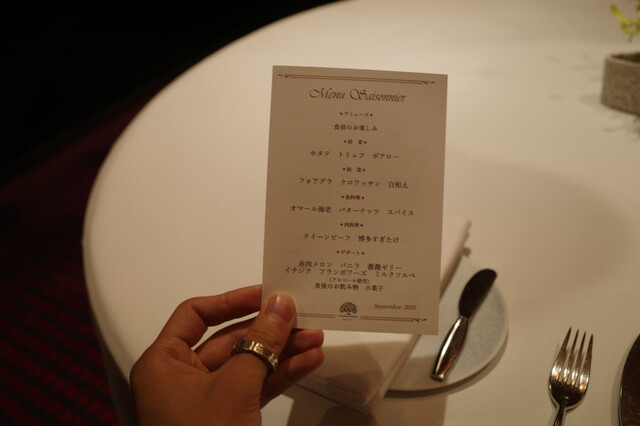 Menu Saisonnier
*アミューズ*
食前のお楽しみ
*前 菜*
ホタテ トリュフ ポアロー
*前 菜*
フォアグラ クロワッサン 白和え
*魚料理*
オマール海老 バターナッツ スパイス
*肉料理*
クイーンビーフ 博多すぎたけ
*デザート*
赤肉メロン バニラ 薔薇ゼリー
イチジク フランボワーズ ミルクソルベ
(アルコール使用)
食後のお飲み物 小菓子
September 2025